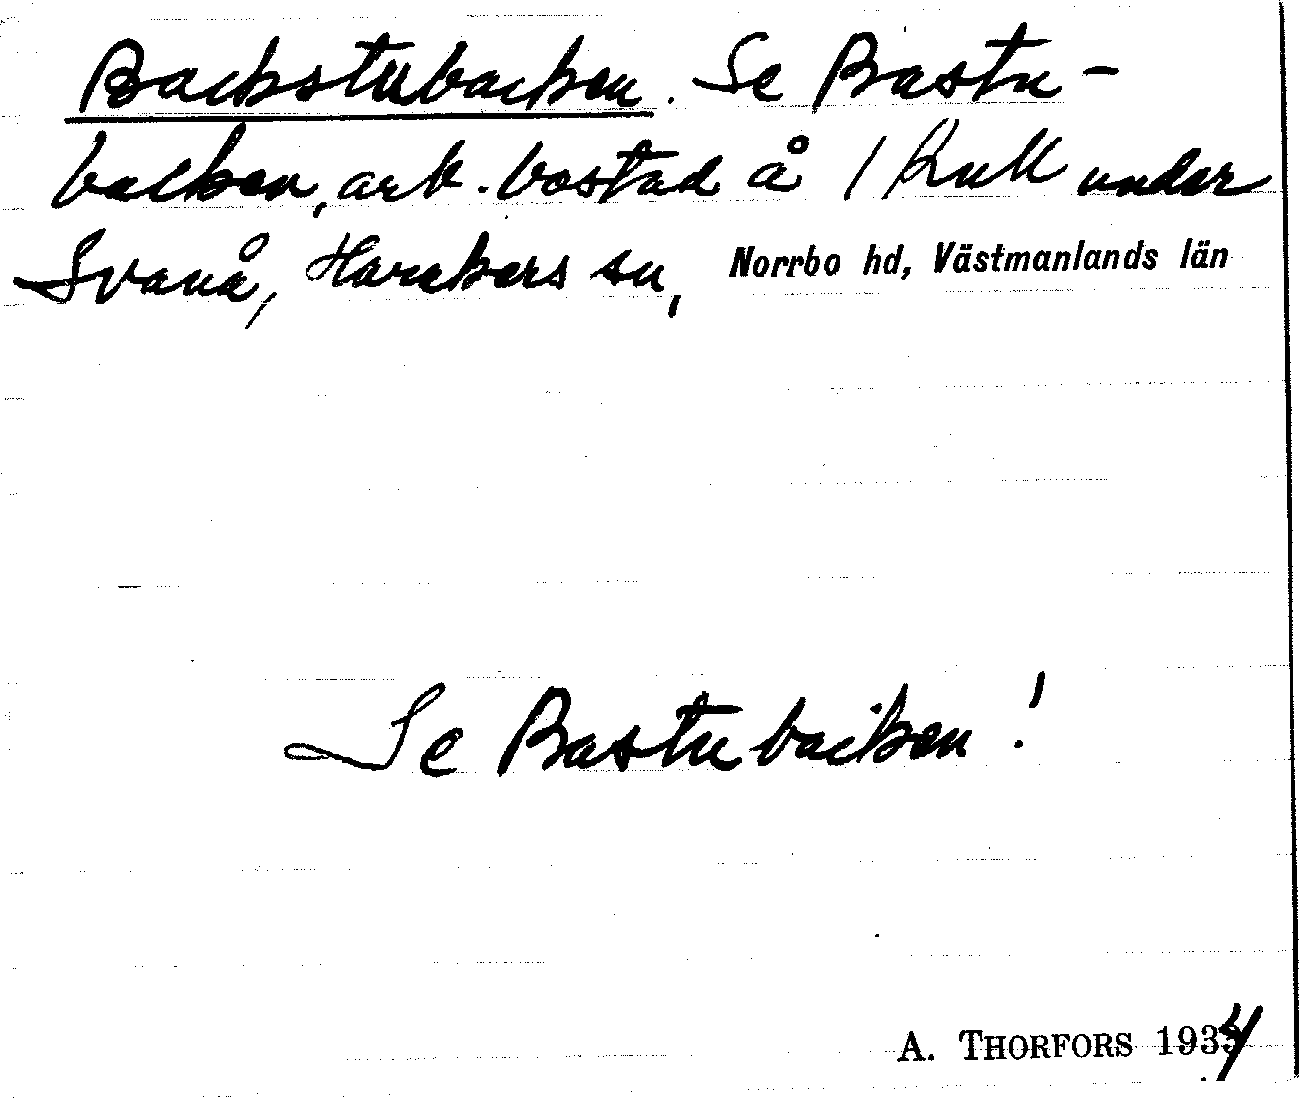 Backstubacken. Se Bastu-
backen, arb. bostad å 1 knll under
Svanå, Harakers sn, Norrbo hd, Västmanlands län
Se Bastubacken!
A. THORFORS 1934